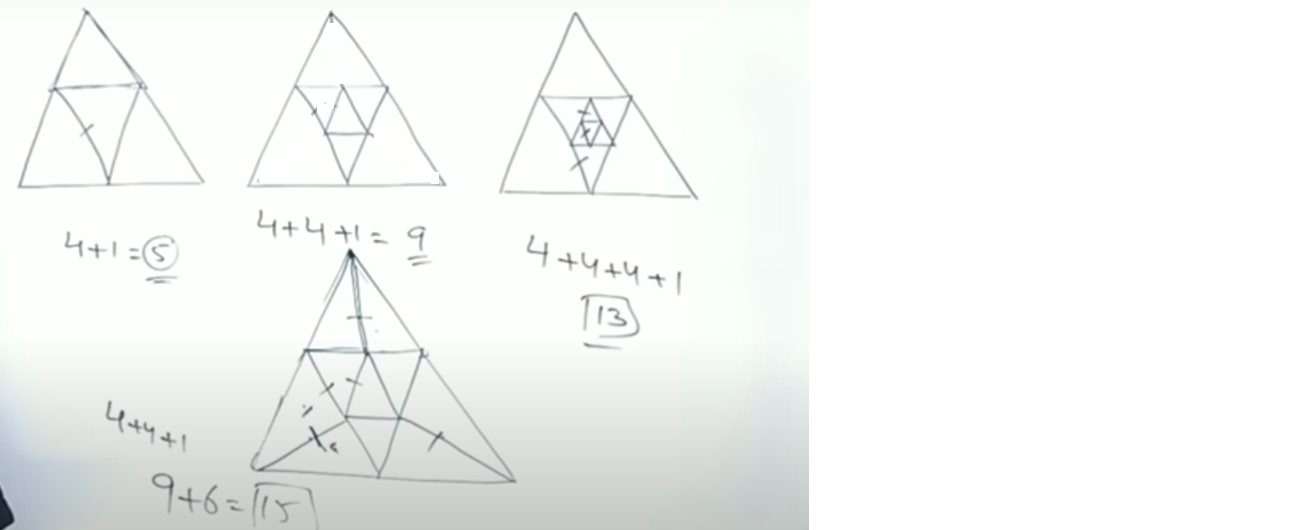 4+1=5
4+4+1= 9
4+4+4+1
13
4+4+1
9+6=15